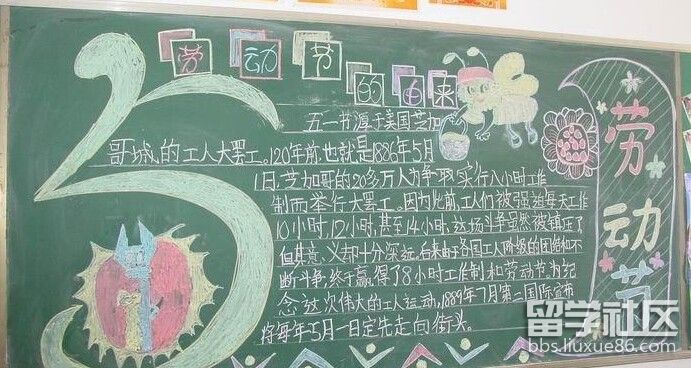 劳动节的由来
五一节源于美国芝加
哥城的工人大罢工。120年前,也就是1886年5月
1日,芝加哥的20多万人为争取实行八小时工作
制而举行大罢工。因为此前,工人们被强迫每天工作
10小时,12小时,甚至14小时,这场斗争虽然被镇压了
但其意义却十分深远,后来由于各国工人阶级的团结和不
断斗争,终于赢得了8小时工作制和劳动节,为纪
念这次伟大的工人运动,1889年7月第二国际宣布
将每年5月一日定先走向街头。
5
劳动节
留学社区
bbs.liuxue86.com